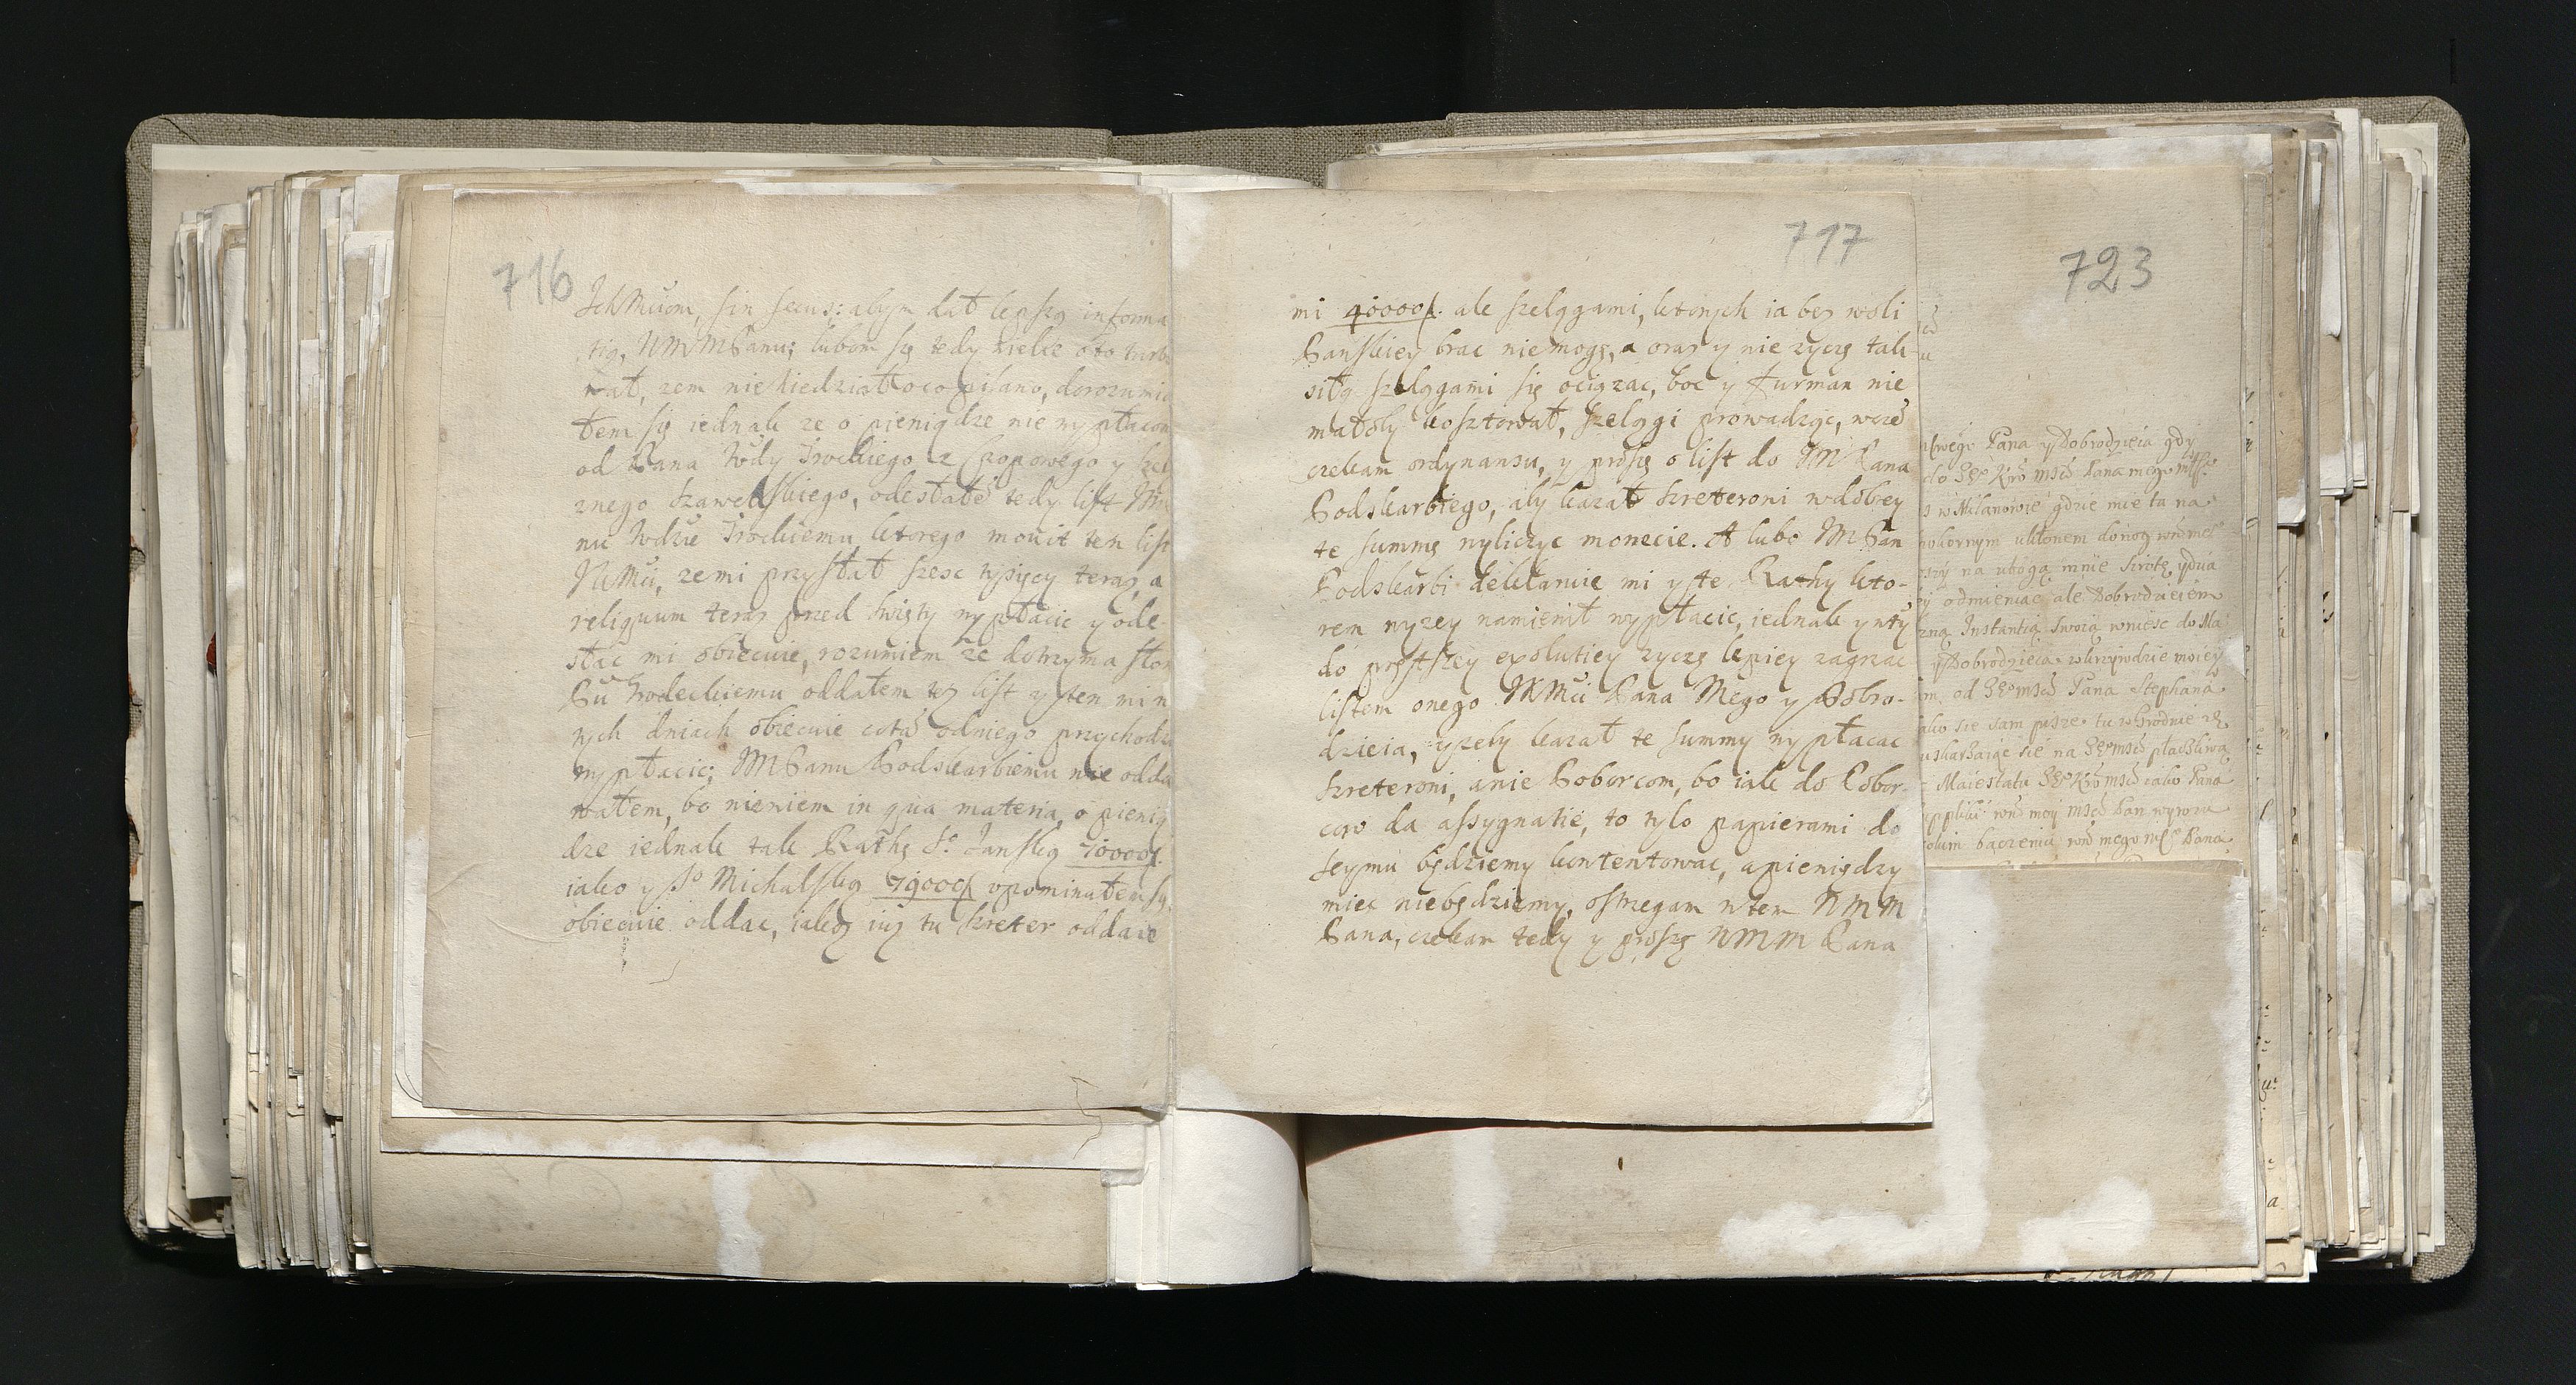 716
IchMciom, sin secus: abym dał lepszą informa
tią, WMMPanu; lubom się tedy wielce o to turbo
wał, zem niewiedział oco pisano, dorozumia
łem się iednak ze o pieniądze nie wypłacon
od Pana Wdy Trockiego z Czopowego y Szel
znego Szawelskiego, odesłałem tedy list Jm
nu Wdzie Trockiemu, ktorego mouit ten list
WMci, zemi przysłał szesc tysięcy teraz, a
reliquum teraz przed Swięty wypłacic y ode-
słac mi obiecuie, rozumiem ze dotrzyma słow
Pu Grodeckiemu oddałem tez list y ten mi w
tych dniach obiecuie coto odniego przychodzi
wypłacic; JMPanu Podskarbiemu nie odda
wałem, bo niewiem in qua materia, o pienią
dze iednak tak Rathę So Janską 70000f.
iako y So Michalską 79000f upominałem się
obiecuie oddac, iakoz iuz tu Szreter oddaie
717
mi 40000f. ale szelągami, ktorych ia bez woli
Panskiey brac niemogę, a oraz y nie zyczę tak
siłą szelągami się ociązac, boc y Furman nie
mało by kosztował, szelągi prowadząc, wczo
czekam ordynansu, y proszę o list do JM Pana
Podskarbiego, aby kazał Szreteroni w dobrey
te summę wyliczyc monecie. A lubo JM Pan
Podskarbi deklaruie mi y te Rathy kto-
rem wyzey namienił wypłacic, iednak y w ty
do prętszey exolutiey zyczę lepiey zagrzac
listem onego WMci Pana Mego y Dobro-
dzieia, yzeby kazał te summy wypłacac
Szreteroni, anie Poborcom, bo iak do Pobor-
cow da assygnatie, to tylo papierami do
Seymu będziemy kontentowac, apieniędzy
miec niebędziemy, ostrzegam wtem WMM
Pana, czekam tedy y proszę WMM Pana
723
Pana y Dobrodzieia gdy
Pana mego
w Milanowie gdzie mie tu na
pokornym ukłonem donog
na ubogą mnie sirotę, y dua
odmieniac ale Dobrodzieiem
Instantią Swoią wniesc do Ma
y Dobrodzieia wkrzywdzie moiey
od Pana Stephana
sie sam pisze tu w Grodnie
uskarzaiąc się na płachliwą
Maiestatu iako Pana
moy Pan wyrozu
baczeniu mego Pana